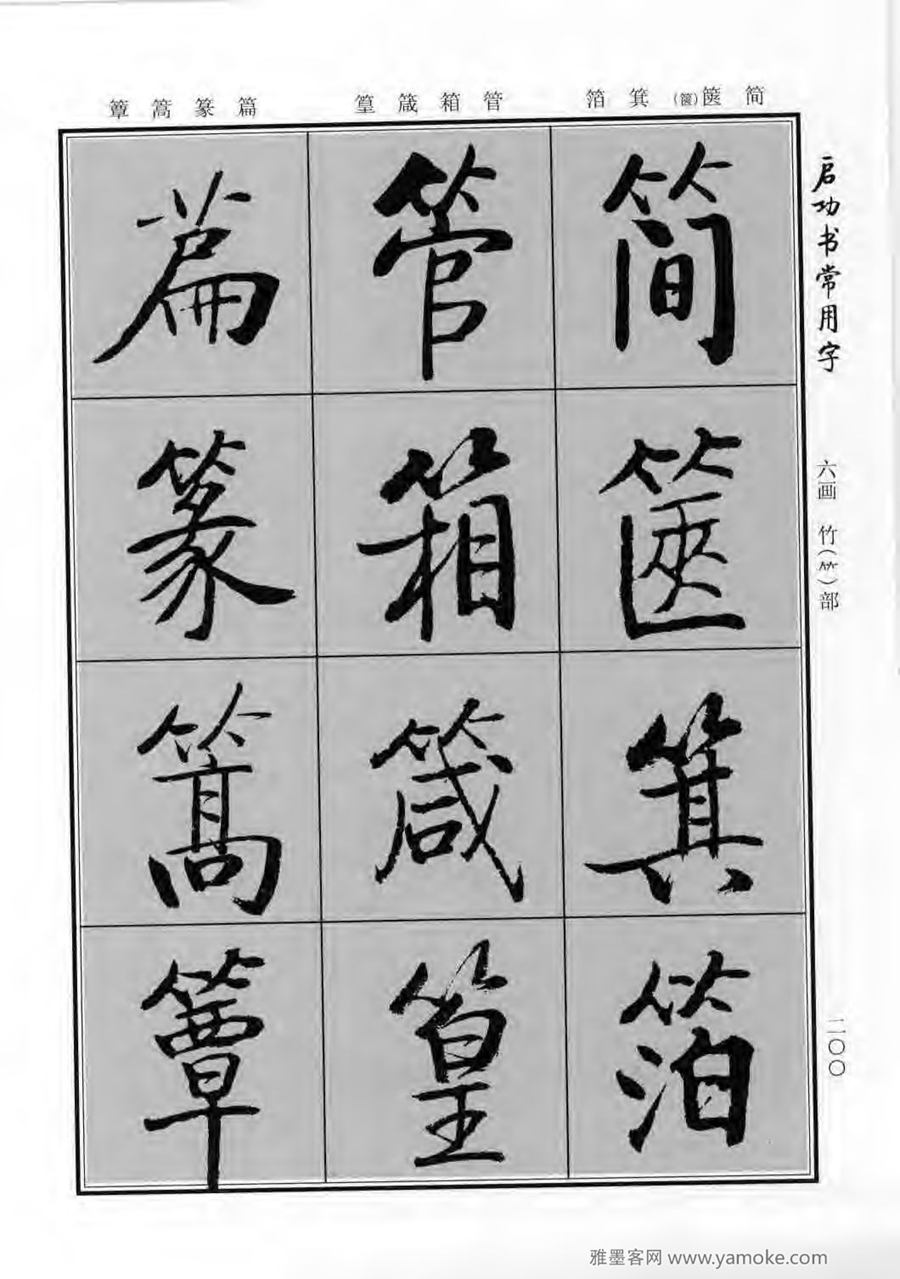 启功书常用字
六画 竹(⺮)部
二〇〇
简箧(篋)箕箔
管箱箴篁
篇篆篙簟
简篋箕箔
管箱箴篁
篇篆篙簟
雅墨客网 www.yamoke.com